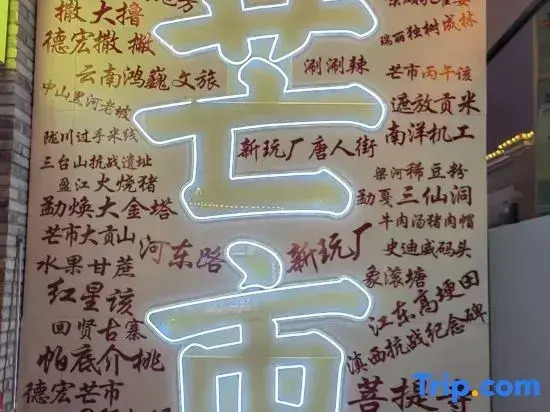 撒大撸
德宏撒撇
云南鸿巍文旅
中山黑河老坡
陇川过手米线
三台山抗战遗址
盈江火烧猪
勐焕大金塔
芒市大贡山
水果甘蔗
红星该
回贤古寨
帕底介桃
德宏芒市
芒市
涮涮辣
新玩厂唐人街
河东路
新玩厂
瑞丽独树成林
芒市丙午该
遮放贡米
南洋机工
梁河稀豆粉
勐戛三仙洞
牛肉汤猪肉帽
史迪威码头
象滚塘
江东高埂田
滇西抗战纪念碑
菩提寺
Trip.com